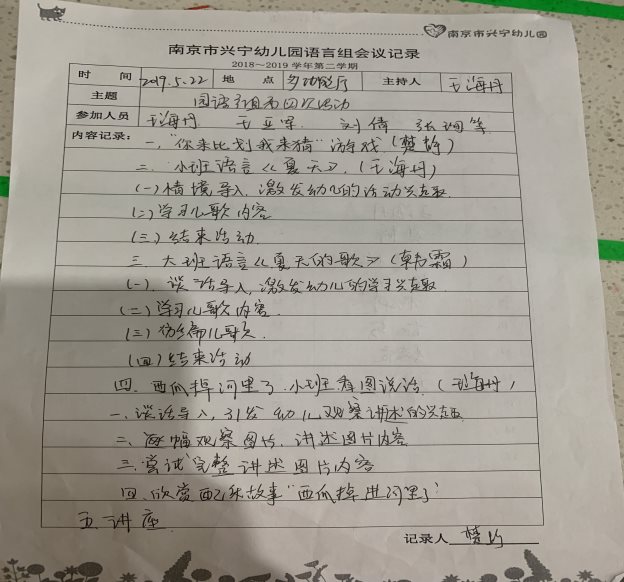 南京市兴宁幼儿园
南京市兴宁幼儿园语言组会议记录
2018～2019 学年第二学期
时 间 2019.5.22 地 点 多功能厅 主持人 王海丹
主题 园语言组第四次活动
参加人员 王海丹 王亚军 刘倩 张翊等
内容记录： 一、“你来比划我来猜”游戏（楚龄）
二、小班语言《夏天》.（王海丹）
(一)情境导入，激发幼儿的活动兴趣
(二)学习儿歌内容
(三)结束活动.
三 大班语言《夏天的歌》（韩霜）
(一)、谈话导入，激发幼儿的学习兴趣
(二)学习儿歌内容.
(三)仿编儿歌.
(四)结束活动
四、西瓜掉河里了.小班看图说话.（王海丹）
一、谈话导入，引发幼儿观察讲述的兴趣.
二、逐幅观察图片、讲述图片内容
三.尝试完整讲述图片内容
四、欣赏配乐故事“西瓜掉进河里了”
五、讲座
记录人